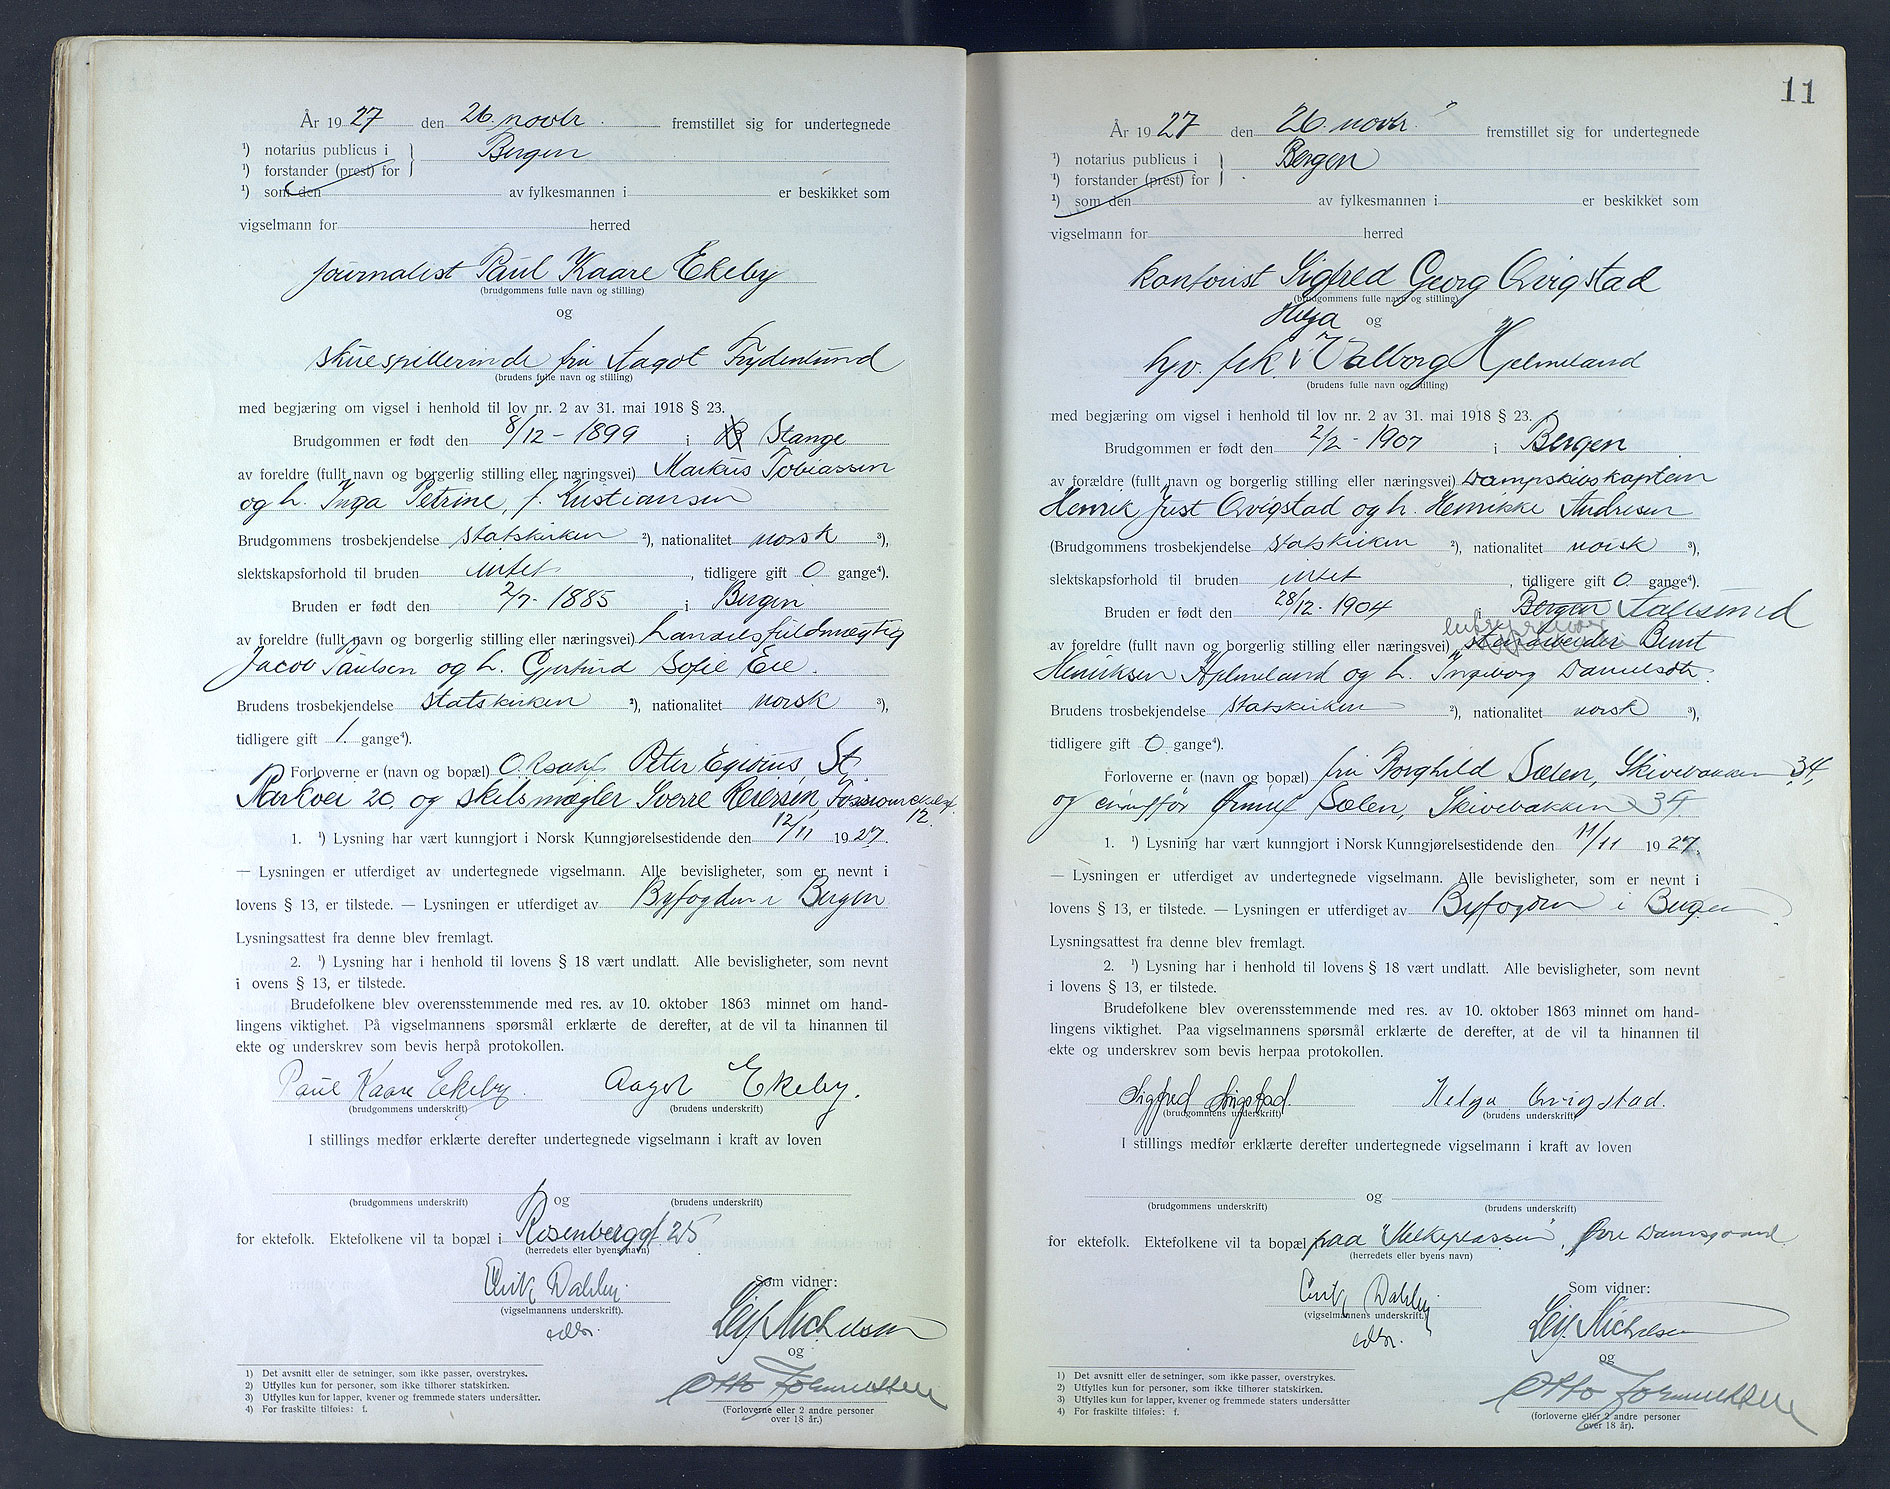 År 1927 den 26. novbr. fremstillet sig for undertegnede
¹) notarius publicus i } Bergen
¹) forstander (prest) for
¹) som den av fylkesmannen i er beskikket som
vigselmann for herred
journalist Paul Kaare Ekeby
(brudgommens fulle navn og stilling)
og
skuespillerinde fru Aagot Frydenlund
(brudens fulle navn og stilling)
med begjæring om vigsel i henhold til lov nr. 2 av 31. mai 1918 § 23.
Brudgommen er født den 8/12 - 1899 i Stange
av foreldre (fullt navn og borgerlig stilling eller næringsvei) Markus Tobiassen
og h. Inga Petrine, f. Kristiansen
Brudgommens trosbekjendelse statskirken ²), nationalitet norsk ³),
slektskapsforhold til bruden intet , tidligere gift 0 gange⁴).
Bruden er født den 2/7 - 1885 i Bergen
av foreldre (fullt navn og borgerlig stilling eller næringsvei) handelsfuldmægtig
Jacob Paulsen og h. Gjertrud Sofie Eie.
Brudens trosbekjendelse statskirken ²), nationalitet norsk ³),
tidligere gift 1. gange⁴).
Forloverne er (navn og bopæl) Peter Egidius, St.
Parkvei 20. og skibsmægler Sverre Reiersen,
12.
1. ¹) Lysning har vært kunngjort i Norsk Kunngjørelsestidende den 12/11 1927.
— Lysningen er utferdiget av undertegnede vigselmann. Alle bevisligheter, som er nevnt i
lovens § 13, er tilstede. — Lysningen er utferdiget av Byfogden i Bergen
Lysningsattest fra denne blev fremlagt.
2. ¹) Lysning har i henhold til lovens § 18 vært undlatt. Alle bevisligheter, som nevnt
i ovens § 13, er tilstede.
Brudefolkene blev overensstemmende med res. av 10. oktober 1863 minnet om hand-
lingens viktighet. På vigselmannens spørsmål erklærte de derefter, at de vil ta hinannen til
ekte og underskrev som bevis herpå protokollen.
Paul Kaare Ekeby. Aagot Ekeby.
(brudgommens underskrift) (brudens underskrift)
I stillings medfør erklærte derefter undertegnede vigselmann i kraft av loven
og
(brudgommens underskrift) (brudens underskrift)
for ektefolk. Ektefolkene vil ta bopæl i Rosenberggt 25
(herredets eller byens navn)
Erik Dahby Som vidner:
(vigselmannens underskrift).
edbr. Leif Michelsen
og
Otto Johannessen
(Forloverne eller 2 andre personer
over 18 år.)
1) Det avsnitt eller de setninger, som ikke passer, overstrykes.
2) Utfylles kun for personer, som ikke tilhører statskirken.
3) Utfylles kun for lapper, kvener og fremmede staters undersåtter.
4) For fraskilte tilføies: f.
11
År 1927 den 26. novbr. fremstillet sig for undertegnede
¹) notarius publicus i } Bergen
¹) forstander (prest) for
¹) som den av fylkesmannen i er beskikket som
vigselmann for herred
kontorist Sigfred Georg Qvigstad
(brudgommens fulle navn og stilling)
Helga og
hjv. frk. Valborg Hjelmeland
(brudens fulle navn og stilling)
med begjæring om vigsel i henhold til lov nr. 2 av 31. mai 1918 § 23.
Brudgommen er født den 2/2 - 1907 i Bergen
av forældre (fullt navn og borgerlig stilling eller næringsvei) Dampskibskaptein
Henrik Just Qvigstad og h. Henrikke Andresen
(Brudgommens trosbekjendelse statskirken ²), nationalitet norsk ³),
slektskapsforhold til bruden intet , tidligere gift 0. gange⁴).
Bruden er født den 28/12 - 1904 i Bergen Aalesund
av foreldre (fullt navn og borgerlig stilling eller næringsvei) Bernt
Henriksen Hjelmeland og h. Ingeborg Danielsdtr.
Brudens trosbekjendelse statskirken ²), nationalitet norsk ³),
tidligere gift 0 gange⁴).
Forloverne er (navn og bopæl) fru Borghild Sælen, Skivebakken 34,
og Sælen, Skivebakken 34.
1. ¹) Lysning har vært kunngjort i Norsk Kunngjørelsestidende den 11/11 1927.
— Lysningen er utferdiget av undertegnede vigselmann. Alle bevisligheter, som er nevnt i
lovens § 13, er tilstede. — Lysningen er utferdiget av Byfogden i Bergen.
Lysningsattest fra denne blev fremlagt.
2. ¹) Lysning har i henhold til lovens § 18 vært undlatt. Alle bevisligheter, som nevnt
i lovens § 13, er tilstede.
Brudefolkene blev overensstemmende med res. av 10. oktober 1863 minnet om hand-
lingens viktighet. Paa vigselmannens spørsmål erklærte de derefter, at de vil ta hinannen til
ekte og underskrev som bevis herpaa protokollen.
Sigfred Qvigstad. Helga Qvigstad.
(brudgommens underskrift) (brudens underskrift)
I stillings medfør erklærte derefter undertegnede vigselmann i kraft av loven
og
(brudgommens underskrift) (brudens underskrift)
for ektefolk. Ektefolkene vil ta bopæl paa "Melkeplassen", Øvre Damsgaard.
(herredets eller byens navn)
Erik Dahby Som vidner:
(vigselmannens underskrift.)
edbr. Leif Michelsen
og
Otto Johannessen
(forloverne eller 2 andre personer
over 18 år).
1) Det avsnitt eller de setninger, som ikke passer, overstrykes.
2) Utfylles kun for personer, som ikke tilhører statskirken.
3) Utfylles kun for lapper, kvener og fremmede staters undersåtter
4) For fraskilte tilføies: f.